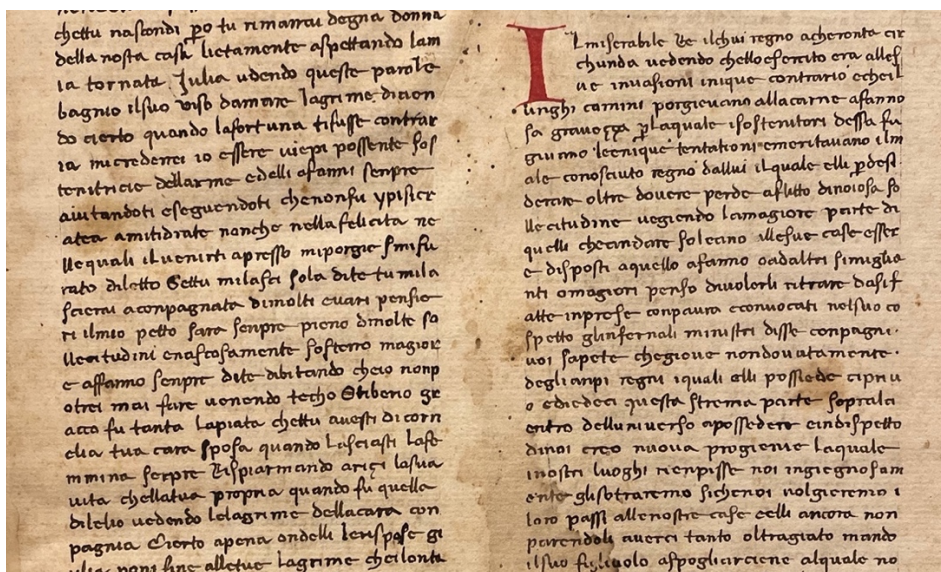 chettu nascondi ꝑo tu rimarrai degna donna
della nosta casa lietamente aspettando lam
ia tornata Julia udendo queste parole
bagnio ilsuo viso damare lagrime dicien
do cierto quando lafortuna tifusse contrar
ia micrederei io essere viepi possente sos
tenitricie dellarme edelli afanni senpre
aiutandoti eseguendoti chenonfu ypisicr
atea amitidrate nonche nellafelicita ne
lle quali ilvenirti apresso miporgie smisu
rato diletto Settu milasci sola dite tu mila
scierai acompagnata dimolti evari pensie
ri ilmio petto sara senpre pieno dimolte so
llecitudini enascosamente sosterro magior
e affanno senpre dite dubitando cheio nonp
otrei mai fare venendo techo O tiberio gr
acco fu tanta lapiata chettu avesti di corn
elia tua cara sposa quando lasciasti lafe
mmina serpre Risparmando ançi lasua
vita chellatua propria quando fu quella
dilelio vedendo lelagrime dellacara con
pagnia Cierto apena
ulia poni fine alletue lagrime cheilonta
Il miserabile Re ilchui regno acheronta cir
chunda vedendo chello esercito era alles
ue invasioni inique contrario echeil
unghi camini porgievano allacarne afanno
sa gravoçça ꝑlaquale isostenitori dessa fu
giuino leenique tentationi emeritavano ilm
ale conosciuto regno dallui ilquale elli ꝑdesi
derare oltre dovere perde aflitto dinoiosa so
llecitudine vegiendo lamagiore parte di
quelli checandare solecino allesue case esser
e disposti aquello afanno oadaltri simiglia
nti omagiori penso divolerli ritrare dasif
atte inprese conpaura econvocati nelsuo co
spetto glinfernali ministri disse conpagni.
voi sapete chegiove nondovatamente.
degli anpi regni iquali elli possiede ci priv
o ediedeci questa strema parte sopralci
entro delluniverso apossedere eindispetto
dinoi creo nuova progienie laquale
inostri luoghi rienpisse noi ingiegnosam
ente glisotraremo sichenoi volgieremo i
loro passi allenostre case eelli ancora non
parendoli averci tanto oltragiato mando
ilsuo figliuolo aspogliarciene alquale no